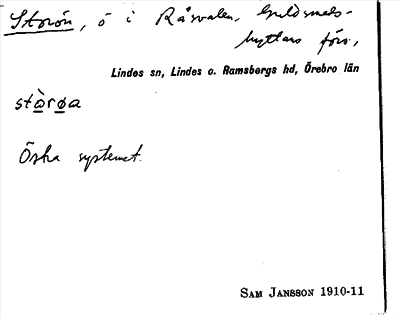 Storön, ö i Råsvalen, Guldsmeds-
hyttans förs,
Lindes sn, Lindes o. Ramsbergs hd, Örebro län
stòrøa
Östra systemet.
SAM JANSSON 1910-11